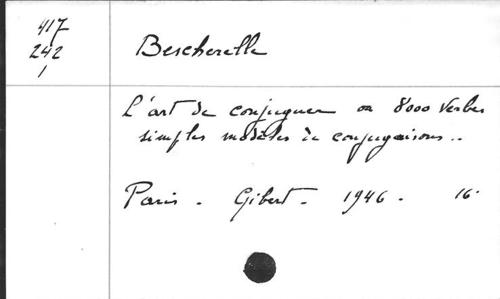 417
242
1
Bescherelle
L'art de conjuguer ou 8000 verbes
simples modèles de conjugaisons..
Paris - Gibert - 1946 - 16°